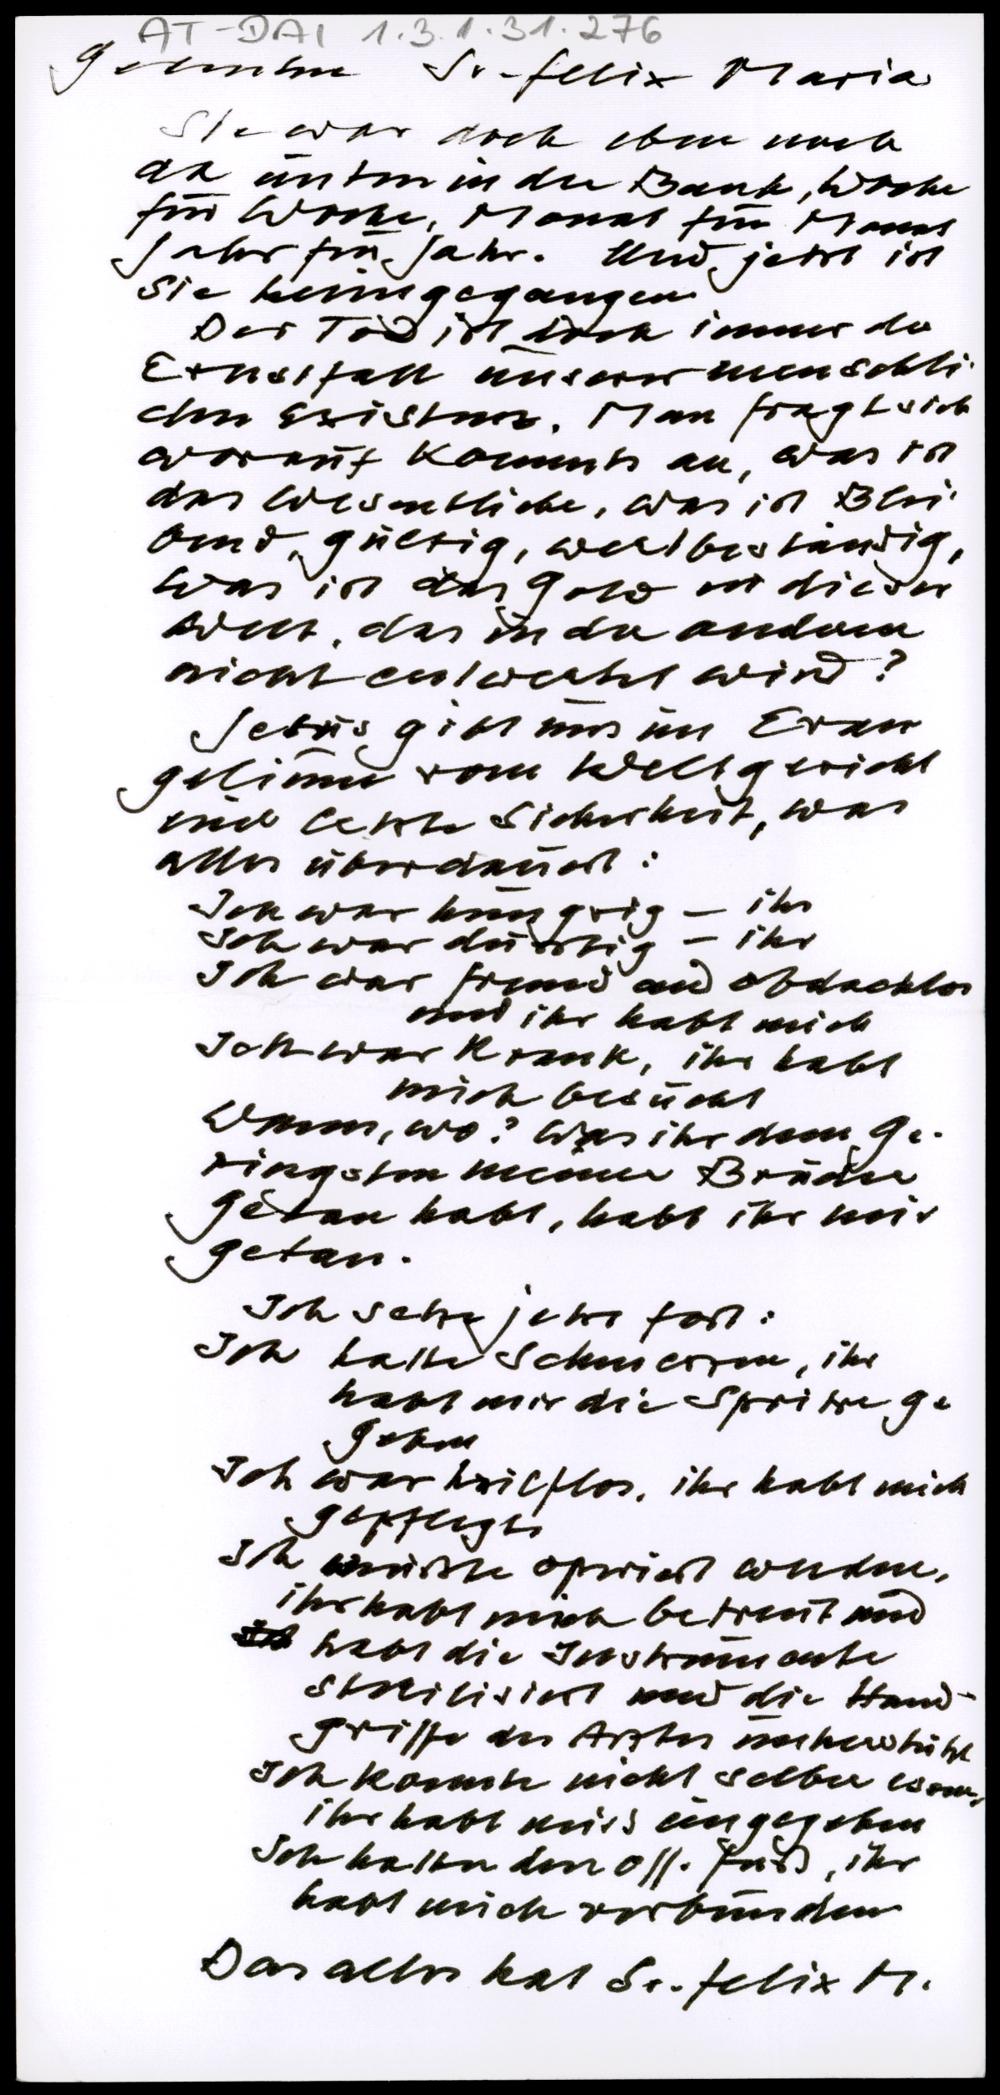 AT-DAI 1.3.1.31.276
Gedenken Sr. Felix Maria
Sie war doch eben noch
da unten in der Bank, Woche
für Woche, Monat für Monat
Jahr für Jahr. Und jetzt ist
sie heimgegangen
Der Tod ist doch immer der
Ernstfall unserer menschli-
chen Existenz. Man fragt sich
worauf kommts an, was ist
das Wesentliche, was ist Blei-
bend, gültig, wertbeständig,
was ist das Gold in dieser
Welt, das in der anderen
nicht entwertet wird?
Jesus gibt uns im Evan
gelium vom Weltgericht
eine letzte Sicherheit, was
alles überdauert:
Ich war hungrig – ihr
Ich war durstig – ihr
Ich war fremd und obdachlos
und ihr habt mich
Ich war krank, ihr habt
mich besucht
Wann, wo? Was ihr dem Ge-
ringsten meiner Brüder
getan habt, habt ihr mir
getan.
Ich setze jetzt fort:
Ich hatte Schmerzen, ihr
habt mir die Spritze ge
geben
Ich war hilflos, ihr habt mich
gepflegt
Ich musste operiert werden,
ihr habt mich betreut und
habt die Instrumente
sterilisiert und die Hand-
griffe des Arztes unterstützt
Ich konnte nicht selber essen,
ihr habt mirs eingegeben
Ich hatte den off. Fuß, ihr
habt mich verbunden
Das alles hat Sr. Felix M.